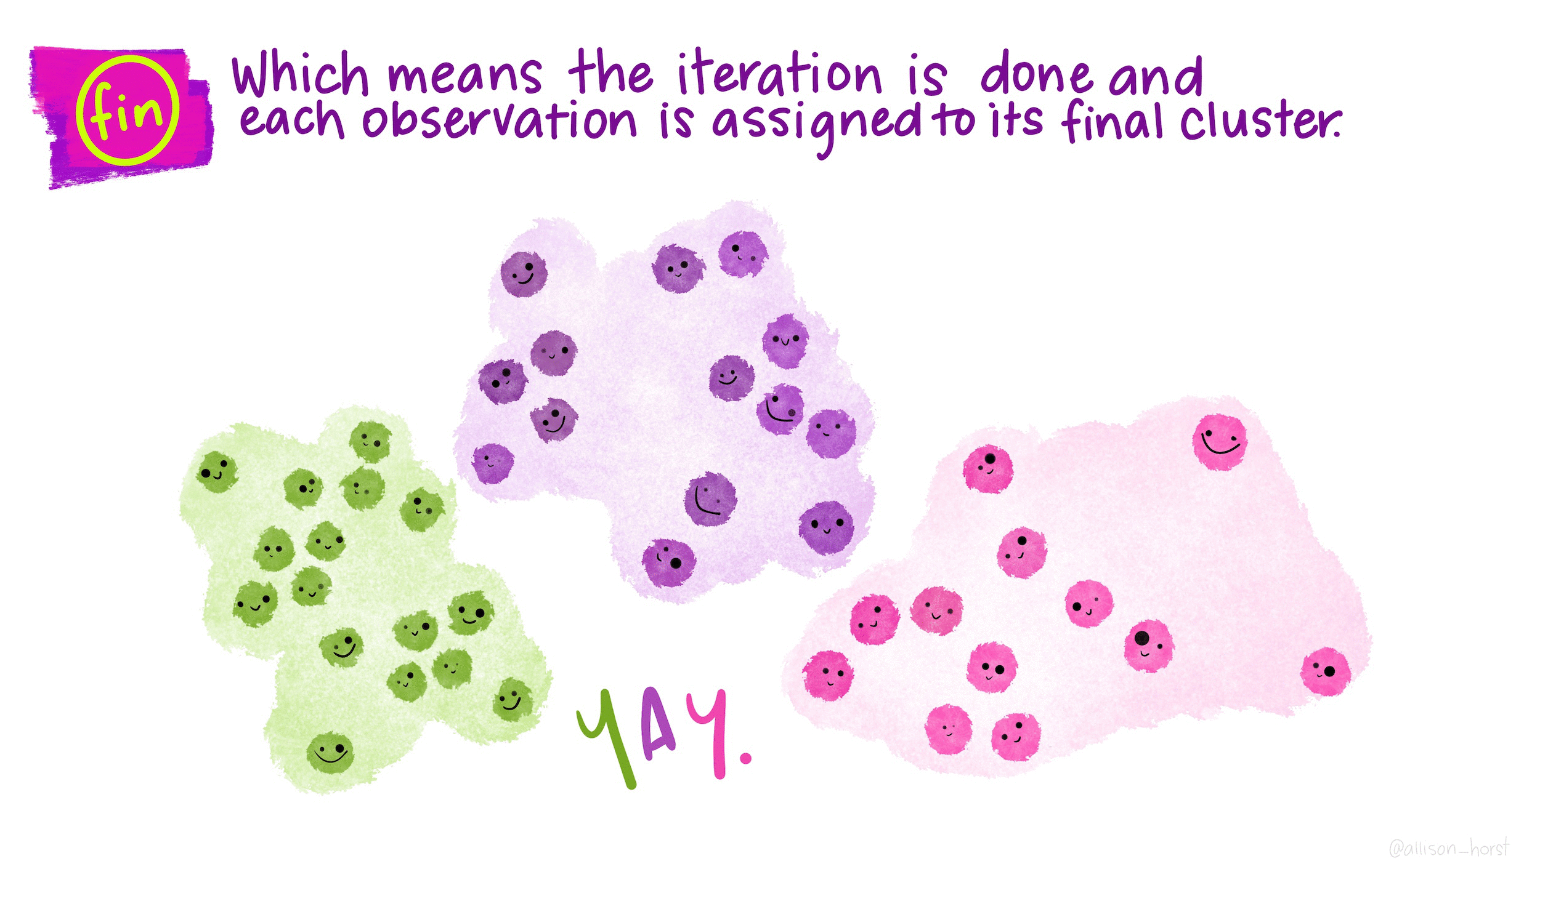 fin
Which means the iteration is done and
each observation is assigned to its final cluster.
YAY.
@allison_horst